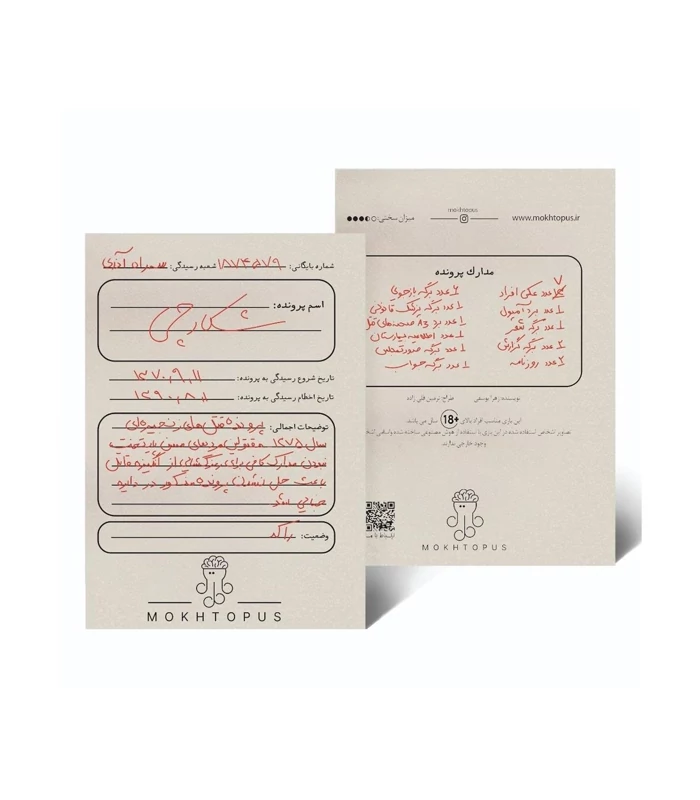 شماره بایگانی: ۱۸۷۴۵۷۹ شعبه رسیدگی: سهراد آذری
اسم پرونده:
شکارچی
تاریخ شروع رسیدگی به پرونده: ۱۳۷۰,۹,۱۱
تاریخ اختتام رسیدگی به پرونده: ۱۳۹۰,۸,۱۱
توضیحات اجمالی: پرونده قتل های زنجیره ای
سال ۱۳۷۵ مقتولین مردهای مسن
نبودن مدارک کافی برای از انگیزه قاتل
باعث حل نشدن پرونده مذکور در دایره
جنایی شد
وضعیت: راکد
MOKHTOPUS
mokhtopus
میزان سختی:
www.mokhtopus.ir
مدارک پرونده
۷ عدد عکس افراد
۱ عدد برد آمپول
۱ عدد برگه شعر
۲ عدد برگه گزارش
۲ عدد روزنامه
۴ عدد برگه بازجویی
۱ عدد برگه پزشک قانونی
۱ عدد برد A3 صحنه های قتل
۱ عدد اطلاعیه بیمارستان
۱ عدد برگه صورتمجلس
۱ عدد برگه جواب
نویسنده: زهرا یوسفی طراح: نرمین قلی زاده
این بازی مناسب افراد بالای +18 سال می باشد.
تصویر اشخاص استفاده شده در این بازی با استفاده از هوش مصنوعی ساخته شده و اسامی
وجود خارجی ندارند.
ارتباط با
MOKHTOPUS